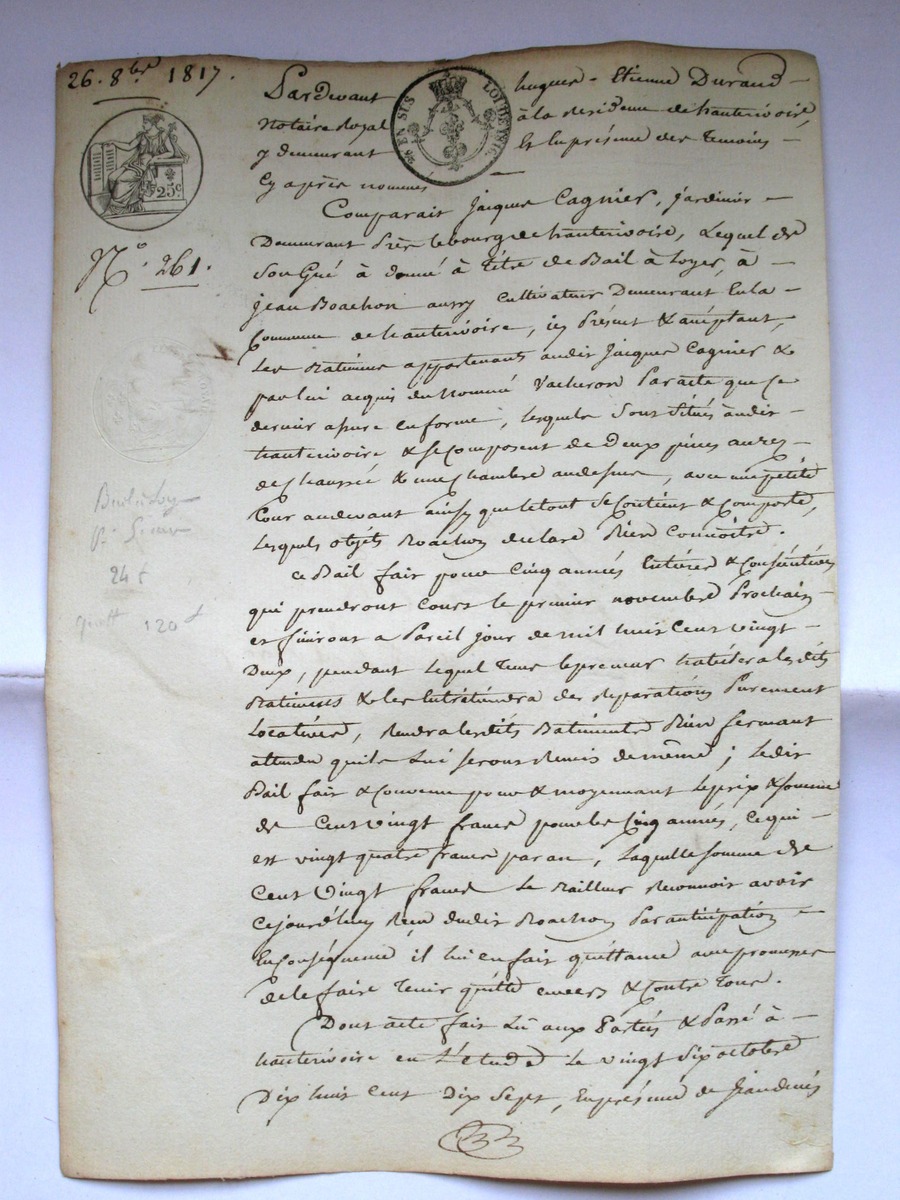 26. 8bre 1817.
25c.
EN SUS
LOI DE 1816.
N.° 261.
Bail à Loy
24 f
quitt 120 f
Pardevant hugues-Etienne Durand
Notaire Royal à la residence de hauterivoire,
y demeurant Et En présence des Temoins
Cy après nommés
Comparait Jacques Cagnier, Jardinier
Demeurant Près le bourg de hauterivoire, Lequel de
Son Gré à donné à Titre de Bail à Loyer, à
Jean Roachon aussy Cultivateur Demeurant En la
Commune de hauterivoire, icy Présent & acceptant,
Les Batiments appartenants audit Jacques Cagnier &
par lui acquis du Nommé Vacheron Par acte que ce
dernier assure en forme, lesquels Sont Situés audit
hauterivoire & se Composent de Deux pièces au rez
de Chaussée & une Chambre au dessus, avec une petite
Cour au devant ainsy que le tout se Contient & Comporte,
Lesquels objets Roachon declare Bien Connoitre.
Ce Bail fait pour Cinq années Entières & Consécutives
qui prendront Cours le premier novembre Prochain
et finiront a Pareil jour de mil huit Cent vingt
Deux, pendant Lequel Tems le preneur habitera lesdits
Batiments & les Entretiendra des Reparations Purement
Locatives, Rendra lesdits Batiments Bien fermant
attendu qu'ils Lui seront Remis de même; Ledit
Bail fait & Convenu pour & moyennant Le prix & somme
de Cent vingt francs pour les Cinq années, Ce qui
est vingt quatre francs par an, Laquelle somme de
Cent Vingt francs Le Bailleur Reconnoit avoir
Cejourd'huy Reçu dudit Roachon Par anticipation
En Conséquence il lui en fait quittance avec promesse
de le faire Tenir quitte envers & Contre Tous.
Dont acte fait Lû aux Parties & Passé à
hauterivoire en L'etude Le vingt Six octobre
Dix huit cent Dix Sept, En présence de